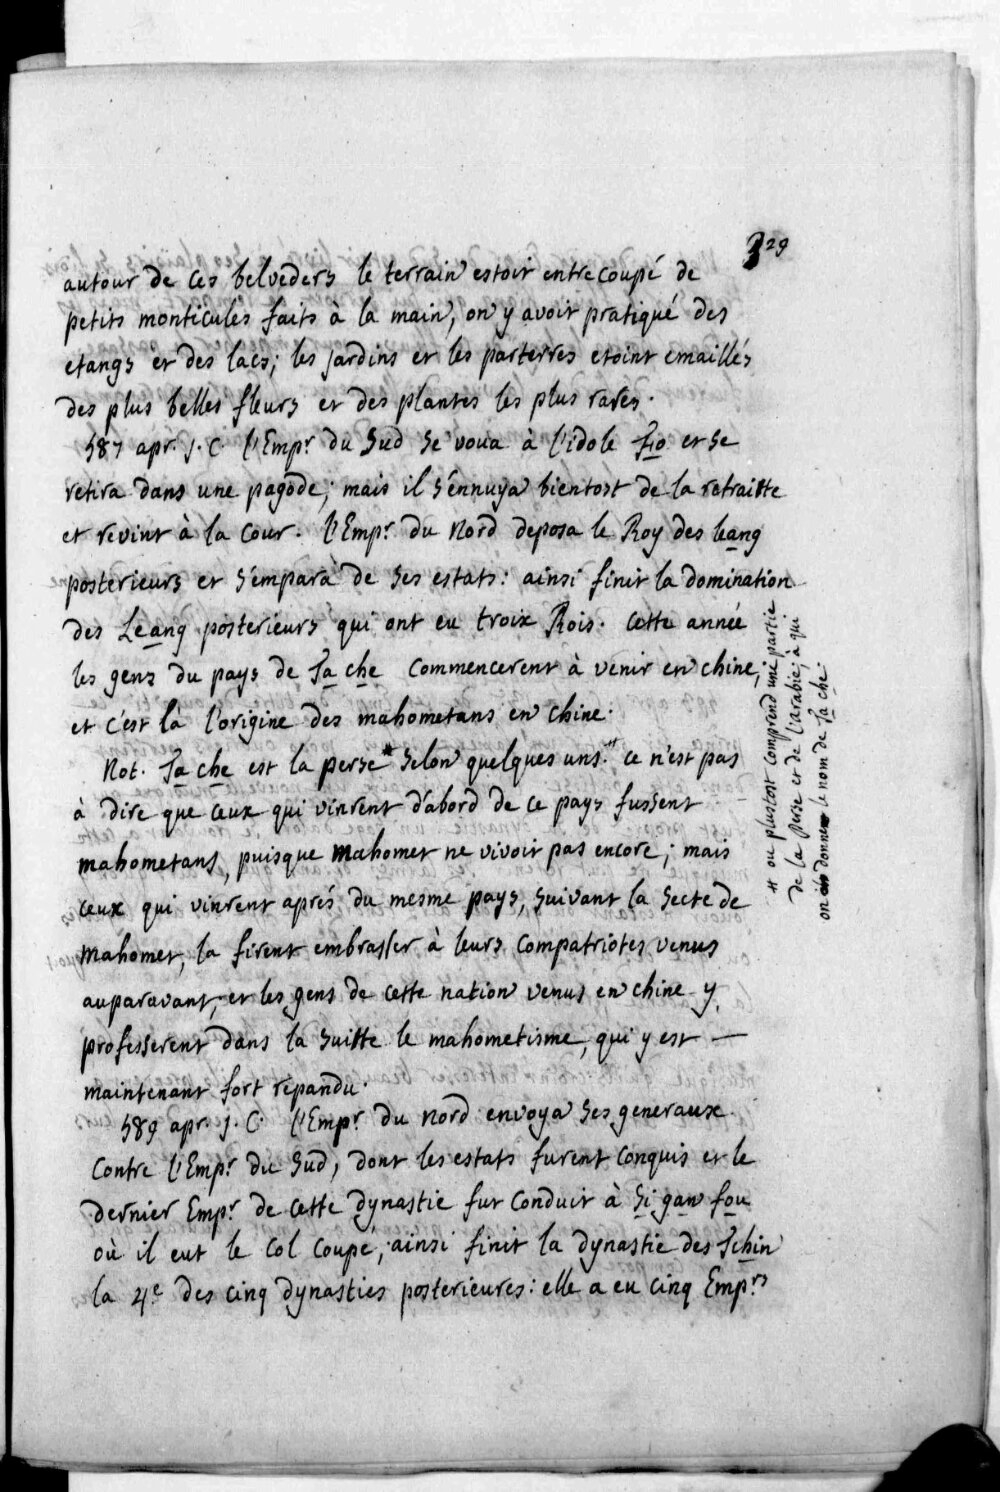 329
autour de ces belveders le terrain estoit entrecoupé de
petits monticules faits à la main, on y avoit pratiqué des
etangs et des lacs; les jardins et les parterres etoint emaillés
des plus belles fleurs et des plantes les plus rares.
587 apr. J. C. l'Empr. du Sud se voua à l'idole Fo et se
retira dans une pagode; mais il s'ennuya bientost de la retraitte
et revint à la cour. l'Empr. du Nord deposa le Roy des leang
posterieurs et s'empara de ses estats: ainsi finit la domination
des Leang posterieurs qui ont eu troix Rois. Cette année
les gens du pays de Ta che commencerent à venir en chine,
et c'est là l'origine des mahometans en chine.
Not. Ta che est la perse selon quelques uns.# ce n'est pas
à dire que ceux qui vinrent d'abord de ce pays fussent
mahometans, puisque mahomet ne vivoit pas encore; mais
ceux qui vinrent aprés du mesme pays, suivant la secte de
mahomet, la firent embrasser à leurs compatriotes venus
auparavant, et les gens de cette nation venus en chine y
professerent dans la suitte le mahometisme, qui y est —
maintenant fort repandu.
589 apr. J. C. l'Empr. du nord envoya ses generaux
contre l'Empr. du Sud, dont les estats furent conquis et le
dernier Empr. de cette dynastie fut conduit à Si gan fou
où il eut le col coupé; ainsi finit la dynastie des Tchin
la 4e. des cinq dynasties posterieures: elle a eu cinq Emp.rs
# ou plustost comprend une partie
de la Perse et de l'arabie, à qui
on donne le nom de Ta che.